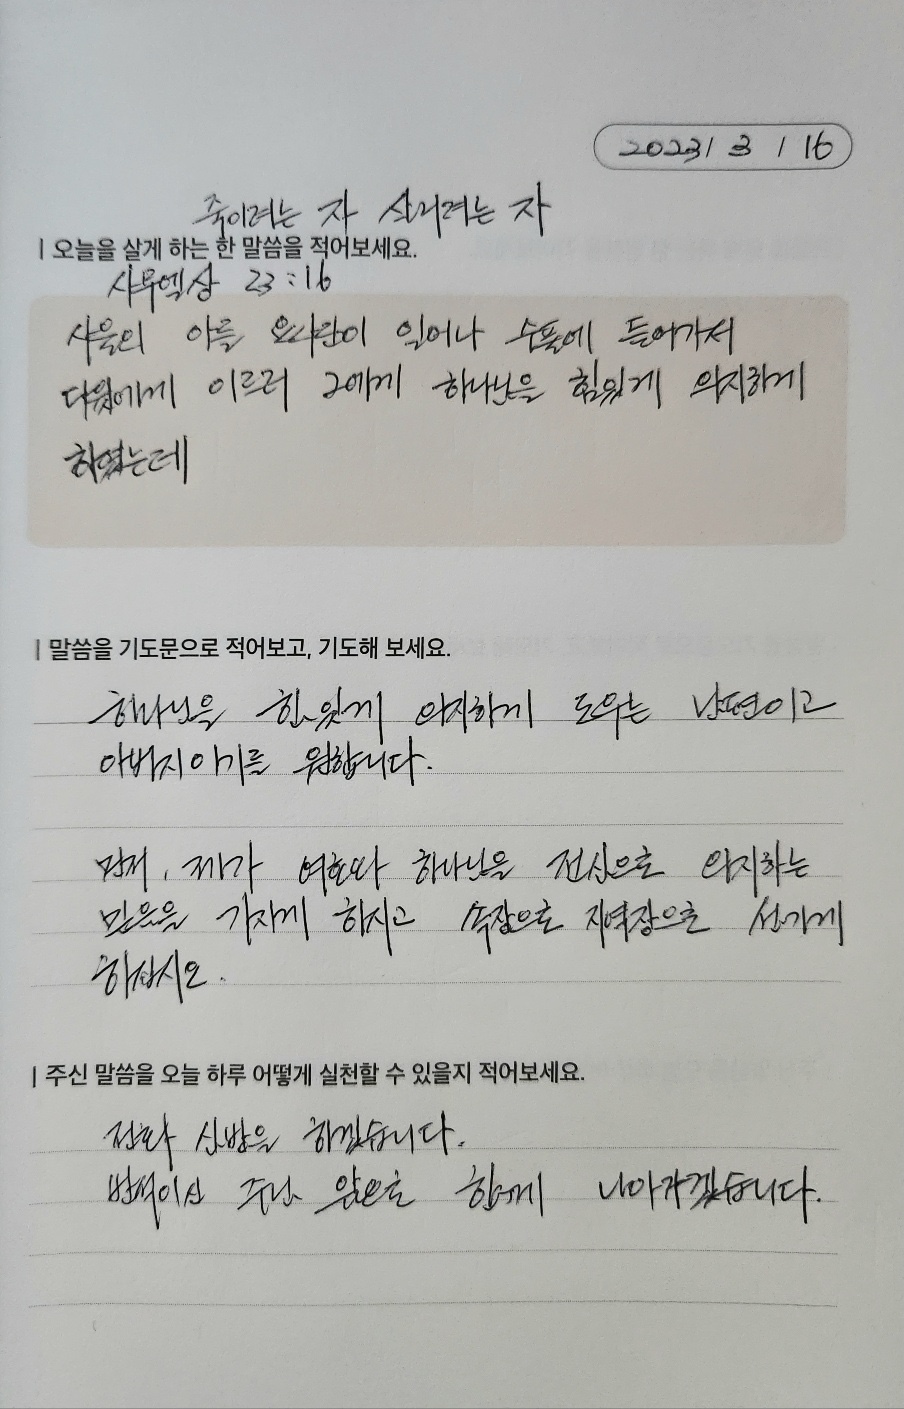 2023 / 3 / 16
죽이려는 자 살리려는 자
| 오늘을 살게 하는 한 말씀을 적어보세요.
사무엘상 23:16
사울의 아들 요나단이 일어나 수풀에 들어가서
다윗에게 이르러 그에게 하나님을 힘있게 의지하게
하였는데
| 말씀을 기도문으로 적어보고, 기도해 보세요.
하나님을 힘있게 의지하게 도우는 남편이고
아버지이기를 원합니다.
먼저, 제가 여호와 하나님을 전심으로 의지하는
믿음을 가지게 하시고 속장으로 지역장으로 섬기게
하십시오.
| 주신 말씀을 오늘 하루 어떻게 실천할 수 있을지 적어보세요.
전화 심방을 하겠습니다.
주님 앞으로 함께 나아가겠습니다.